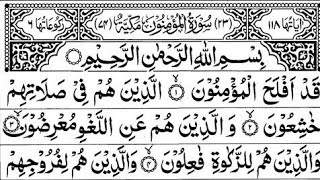 اٰيَاتُهَا ١١٨ (٢٣) سُوْرَةُ الْمُؤْمِنُوْنَ مَكِّيَّةٌ (٧٤) رُكُوْعَاتُهَا ٦
بِسْمِ اللّٰهِ الرَّحْمٰنِ الرَّحِيْمِ
قَدْ اَفْلَحَ الْمُؤْمِنُوْنَ ۙ ١ الَّذِيْنَ هُمْ فِيْ صَلَاتِهِمْ
خٰشِعُوْنَ ۙ ٢ وَالَّذِيْنَ هُمْ عَنِ اللَّغْوِ مُعْرِضُوْنَ ۙ ٣
وَالَّذِيْنَ هُمْ لِلزَّكٰوةِ فٰعِلُوْنَ ۙ ٤ وَالَّذِيْنَ هُمْ لِفُرُوْجِهِمْ